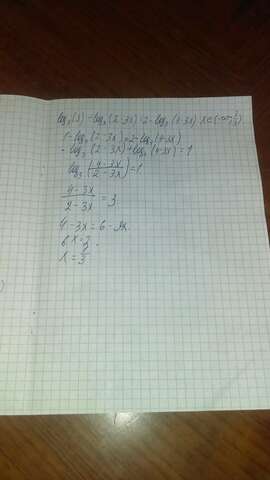 log₃(3) - log₃(2-3x) = 2 - log₃(4-3x) x ∈ (-∞; 2/3)
1 - log₃(2-3x) = 2 - log₃(4-3x)
- log₃(2-3x) + log₃(4-3x) = 1
log₃((4-3x)/(2-3x)) = 1
(4-3x)/(2-3x) = 3
4 - 3x = 6 - 9x
6x = 2
x = 1/3